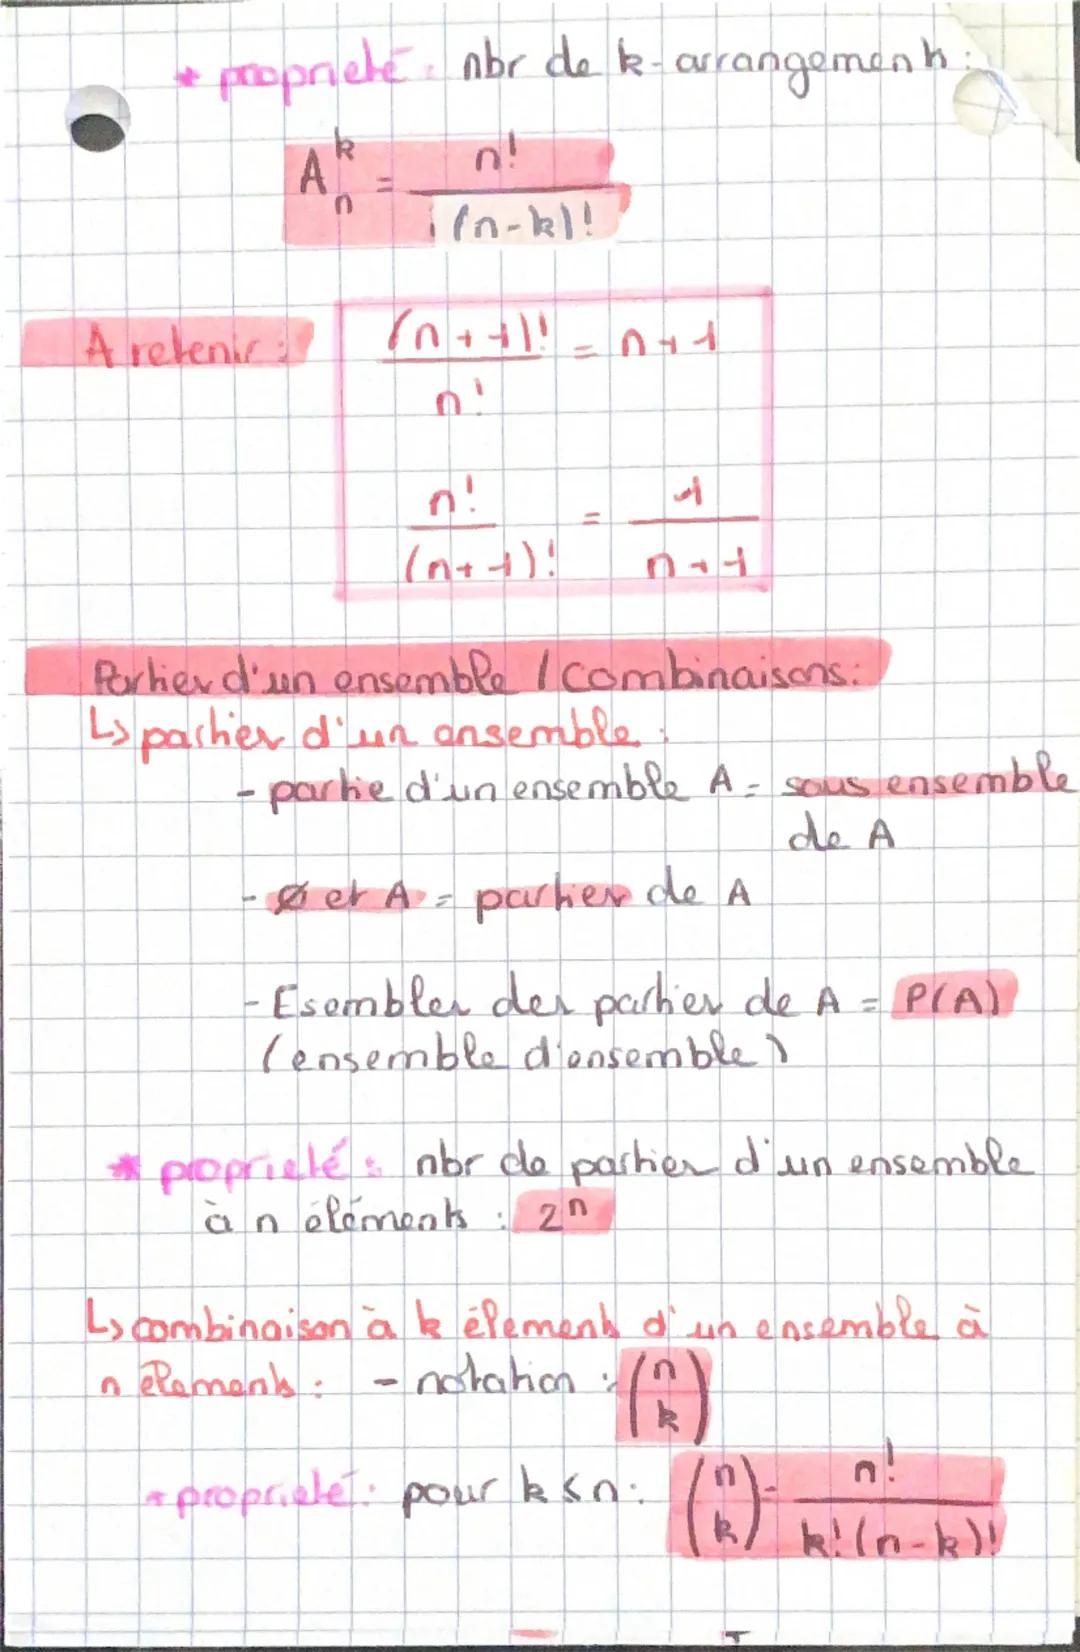 * propriété : nbr de k-arrangements :
A_n^k = n! / (n-k)!
A retenir : (n+1)! / n! = n+1
n! / (n+1)! = 1 / n+1
Parties d'un ensemble / Combinaisons :
↳ parties d'un ensemble :
- partie d'un ensemble A = sous ensemble
de A
- ∅ et A = parties de A
- Esembles des parties de A = P(A)
(ensemble d'ensemble)
* propriété : nbr de parties d'un ensemble
à n éléments : 2^n
↳ combinaison à k éléments d'un ensemble à
n éléments : - notation : (n k)
* propriété : pour k ≤ n : (n k) = n! / k!(n-k)!